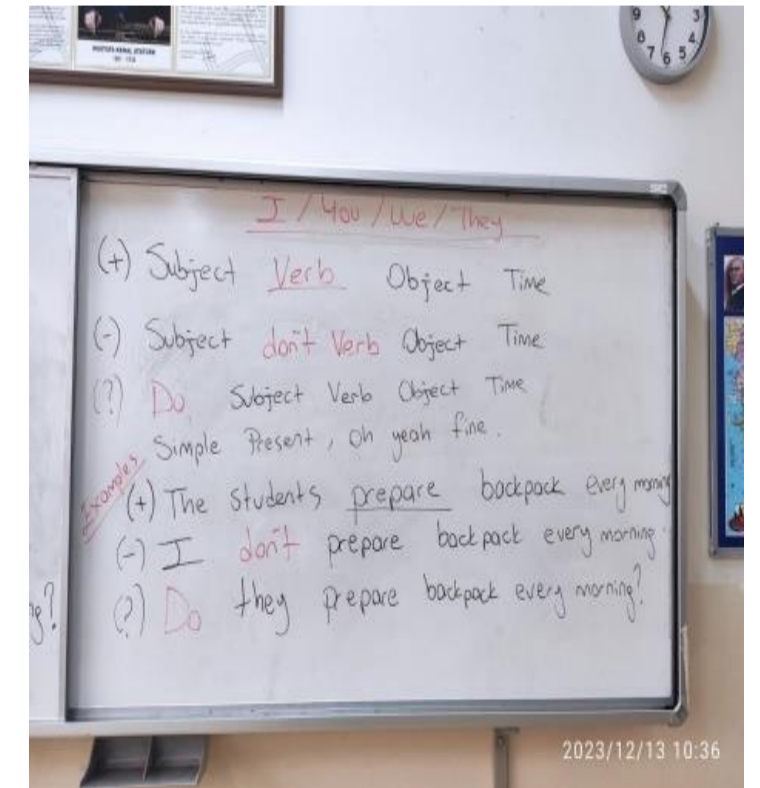 MUSTAFA KEMAL ATATÜRK
1881 - 1938
9 3
8 4
7 6 5
I / You / We / They
(+) Subject Verb Object Time
(-) Subject don't Verb Object Time
(?) Do Subject Verb Object Time
Simple Present, Oh yeah fine.
Examples
(+) The students prepare backpack every morning
(-) I don't prepare backpack every morning.
(?) Do they prepare backpack every morning?
g?
2023/12/13 10:36